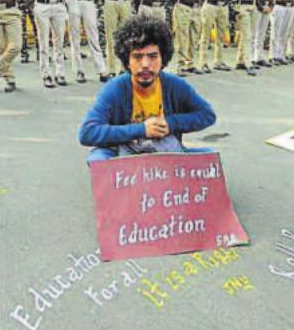 Fee hike is equal
to End of
Education
Education
For all
it is a Right
JNU